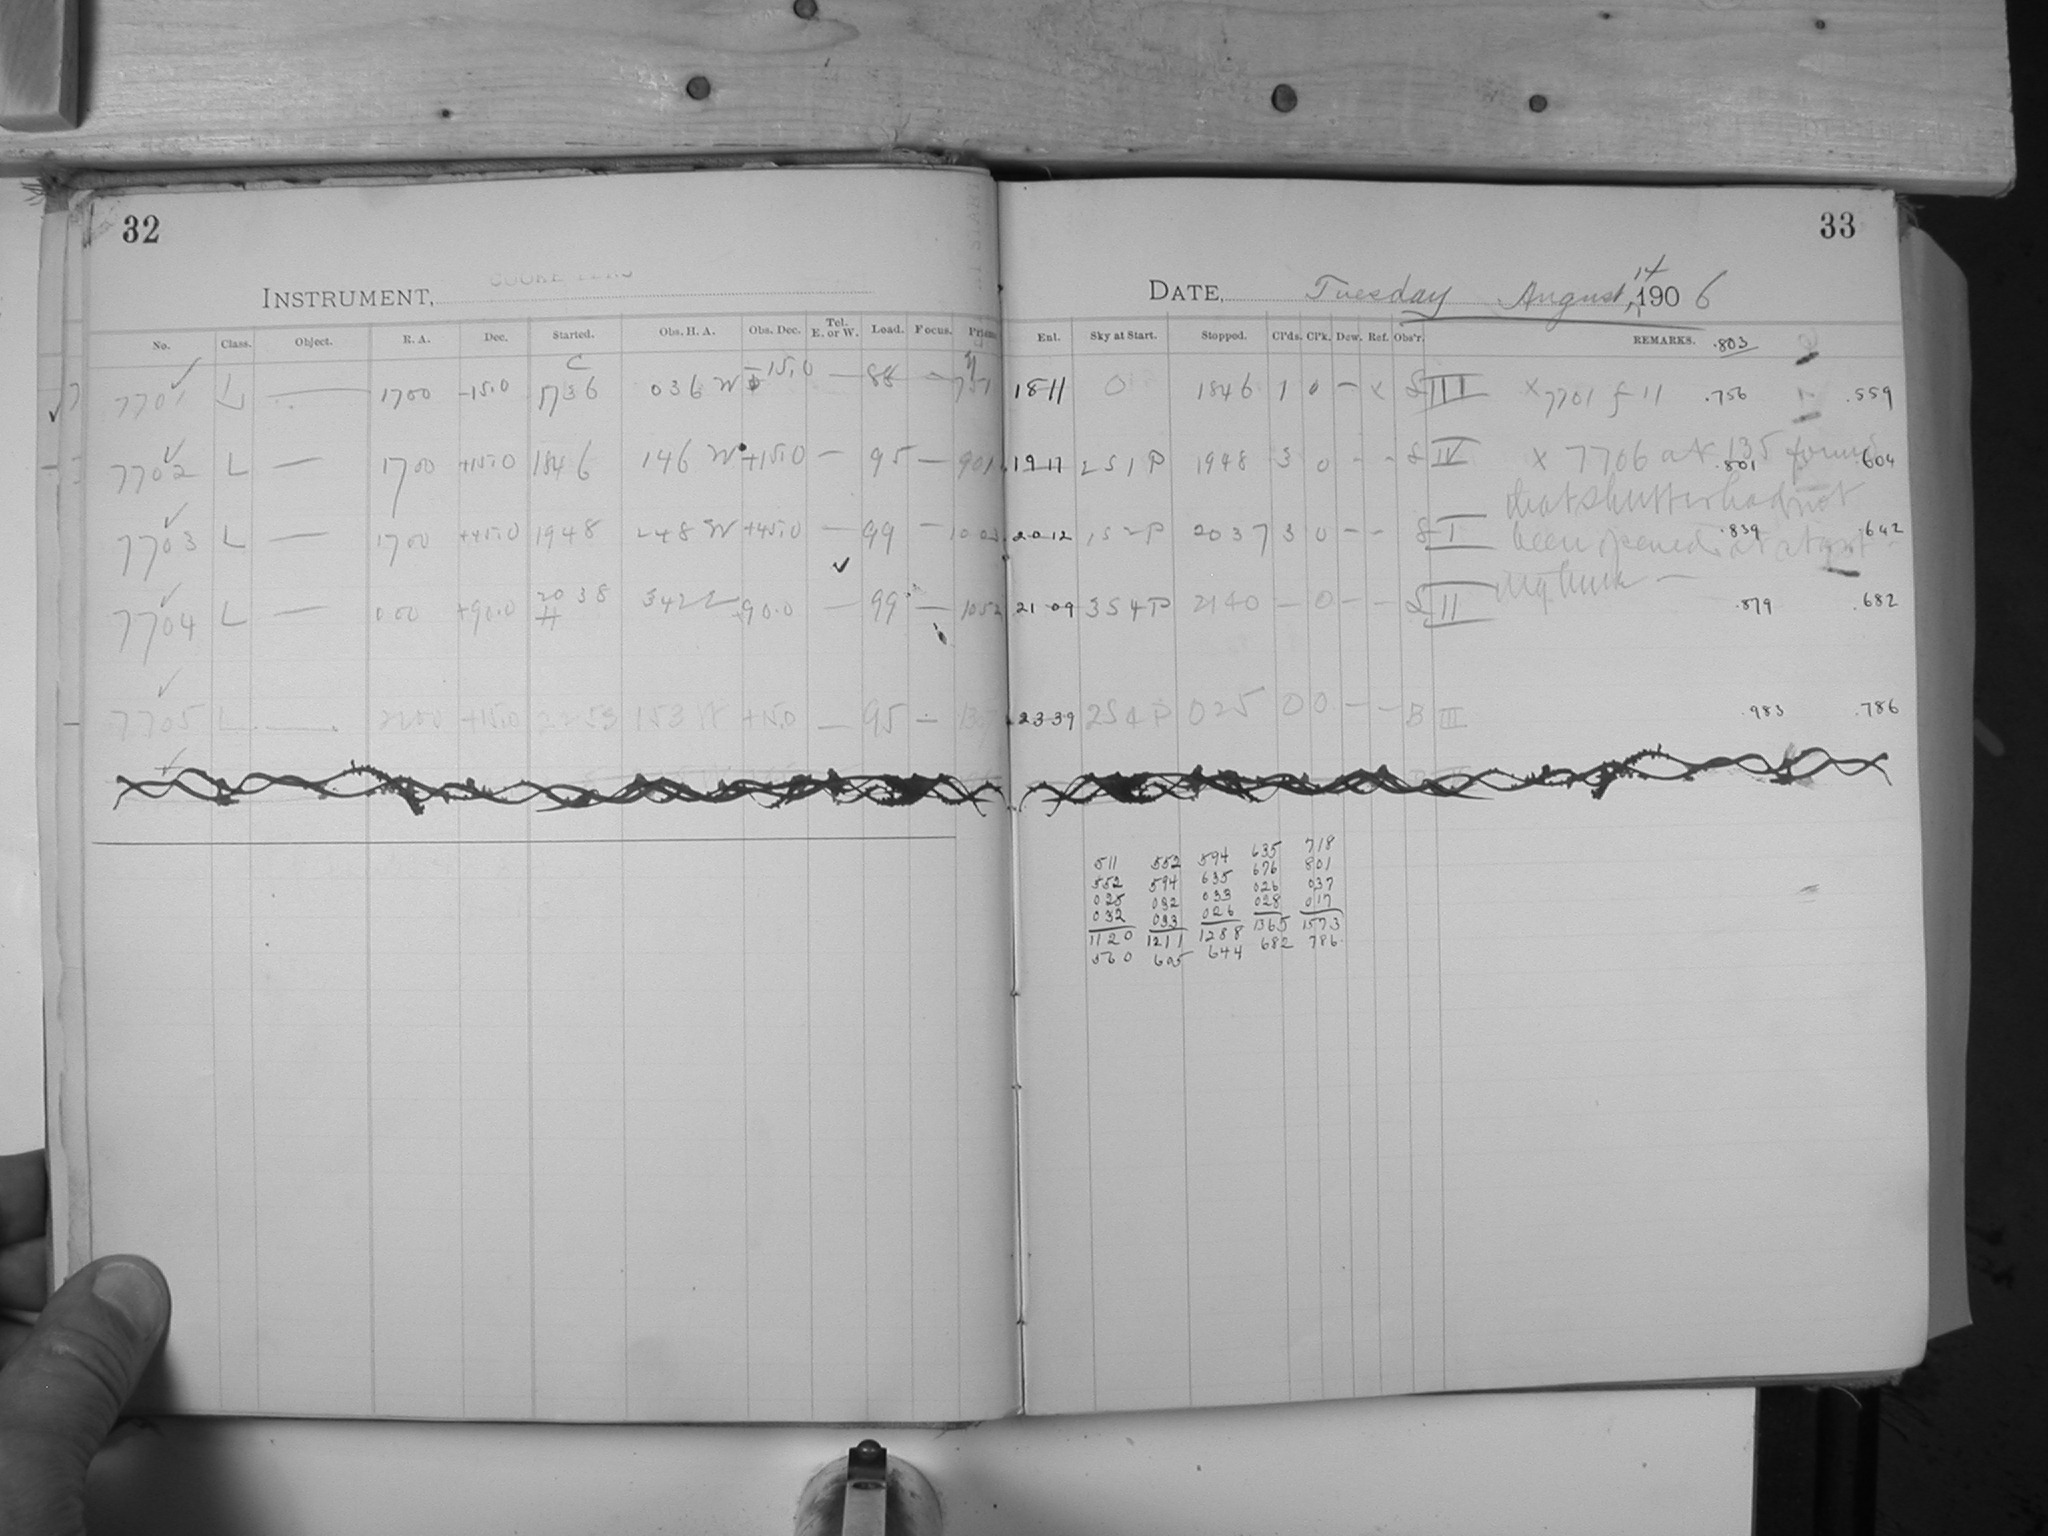 32
INSTRUMENT, COOKE LENS
No. Class. Object. R. A. Dec. Started. Obs. H. A. Obs. Dec. Tel. E. or W. Load. Focus.
7701 L — 1700 -15.0 1736 036 W -15.0 — 88 — 751
7702 L — 1700 +15.0 1846 146 W +15.0 — 95 — 901
7703 L — 1700 +45.0 1948 248 W +45.0 — 99 —
7704 L — 000 +90.0 2038 +90.0 — 99 — 1052
7705 L — 2100 +15.0 2253 153 W +15.0 — 95 —
33
DATE, Tuesday August, 14 1906
Enl. Sky at Start. Stopped. Cl'ds. Cl'k. Dew. Ref. Obs'r. REMARKS. .803
18 11 0 1846 1 0 — x S III x 7701 f 11 .756 .559
19 17 2S1P 1948 3 0 - - S IV x 7706 at 135 found .801 .604
20 12 1S2P 2037 3 0 - - S I that shutter had not .839 .642
been opened at start
21 09 3S4P 2140 — 0 — - S II .879 .682
23 39 2S4P 025 0 0 — — B III .983 .786
511 552 594 635 718
552 594 635 676 801
025 032 033 026 037
032 033 026 028 017
1120 1211 1288 1365 1573
560 605 644 682 786